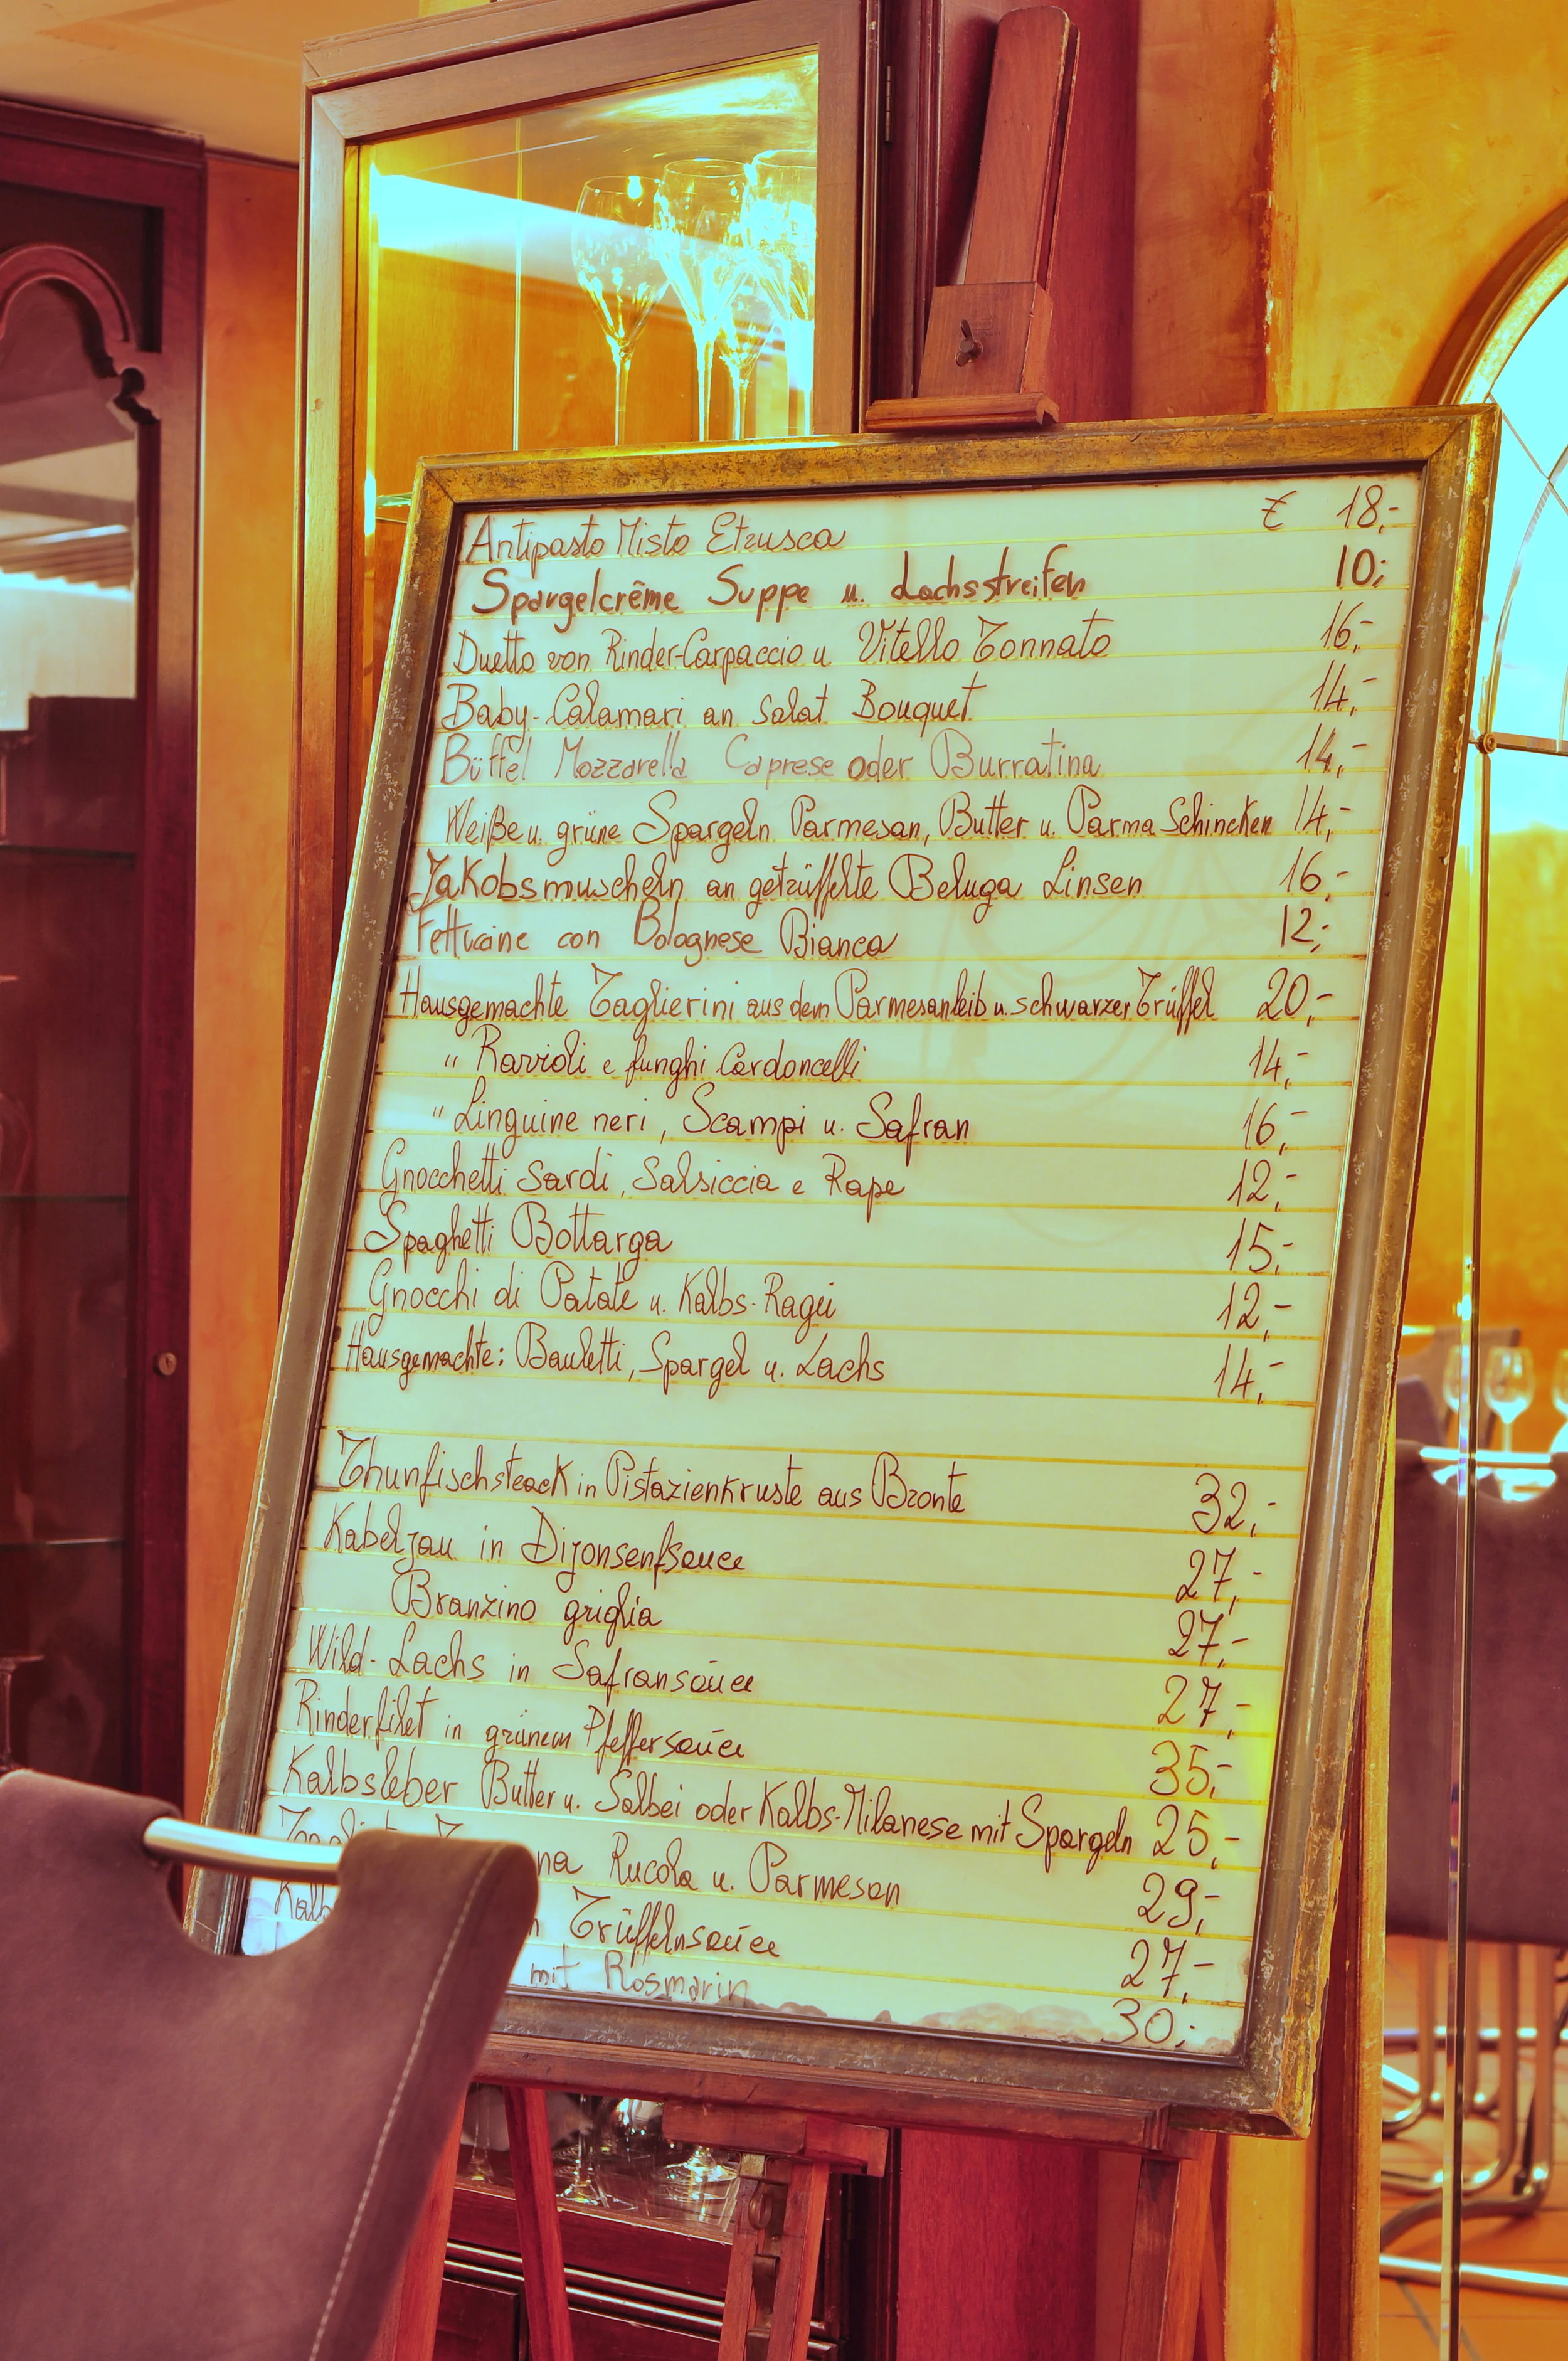 Antipasto Misto Etrusca € 18,-
Spargelcrême Suppe u. Lachsstreifen 10,-
Duetto von Rinder-Carpaccio u Vitello Tonnato 16,-
Baby-Calamari an Salat Bouquet 14,-
Büffel Mozzarella Caprese oder Burratina 14,-
Weiße u. grüne Spargeln Parmesan, Butter u. Parma Schincken 14,-
Jakobsmuscheln an getrüffelte Beluga Linsen 16,-
Fettucine con Bolognese Bianca 12,-
Hausgemachte Taglierini aus dem Parmesanleib u. schwarzer Trüffel 20,-
" Ravioli e funghi Cardoncelli 14,-
" Linguine neri, Scampi u. Safran 16,-
Gnocchetti Sardi, Salsiccia e Rape 12,-
Spaghetti Bottarga 15,-
Gnocchi di Patate u. Kalbs-Ragú 12,-
Hausgemachte: Bauletti, Spargel u. Lachs 14,-
Thunfischsteack in Pistazienkruste aus Bronte 32,-
Kabeljau in Dijonsenfsauce 27,-
Branzino griglia 27,-
Wild-Lachs in Safransauce 27,-
Rinderfilet in grünem Pfeffersauce 35,-
Kalbsleber Butter u. Salbei oder Kalbs-Milanese mit Spargeln 25,-
Rucola u. Parmesan 29,-
Trüffelnsauce 27,-
mit Rosmarin 30,-